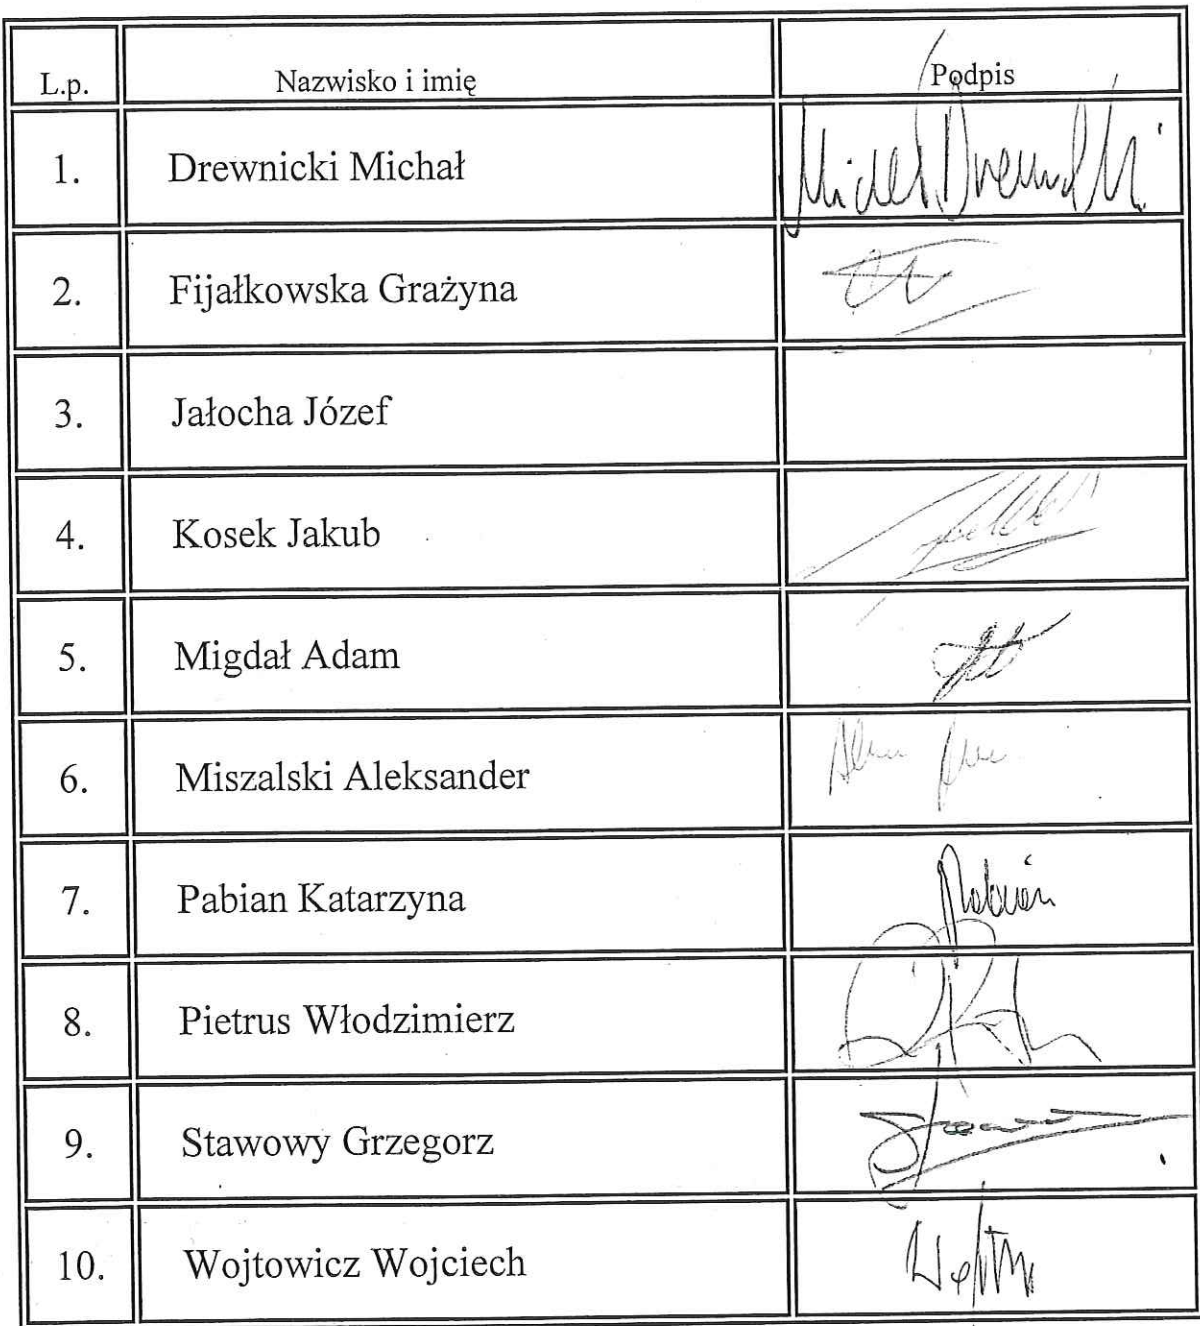 L.p. Nazwisko i imię Podpis
1. Drewnicki Michał
2. Fijałkowska Grażyna
3. Jałocha Józef
4. Kosek Jakub
5. Migdał Adam
6. Miszalski Aleksander
7. Pabian Katarzyna Pabian
8. Pietrus Włodzimierz
9. Stawowy Grzegorz
10. Wojtowicz Wojciech